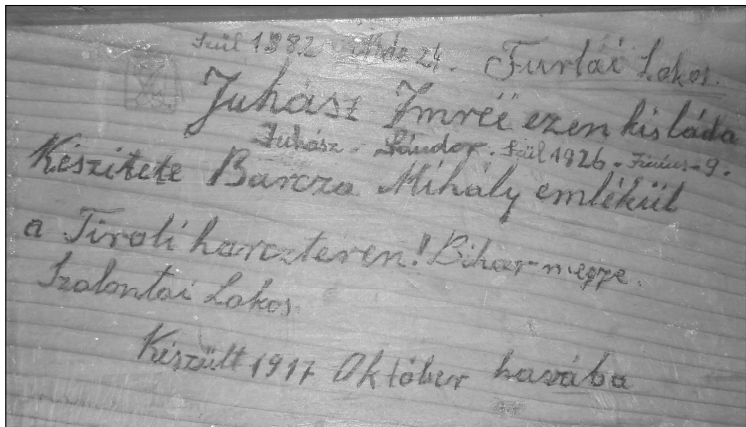 Szül 1882 24. Furtai Lakos.
Juhász Imréé ezen kis láda
Juhász - Sándor. Szül 1926. Junius-9.
Készitete Barcza Mihály emlékül
a Tiroli harczteren! Bihar-megye.
Szalontai Lakos
Készült 1917 Október havába